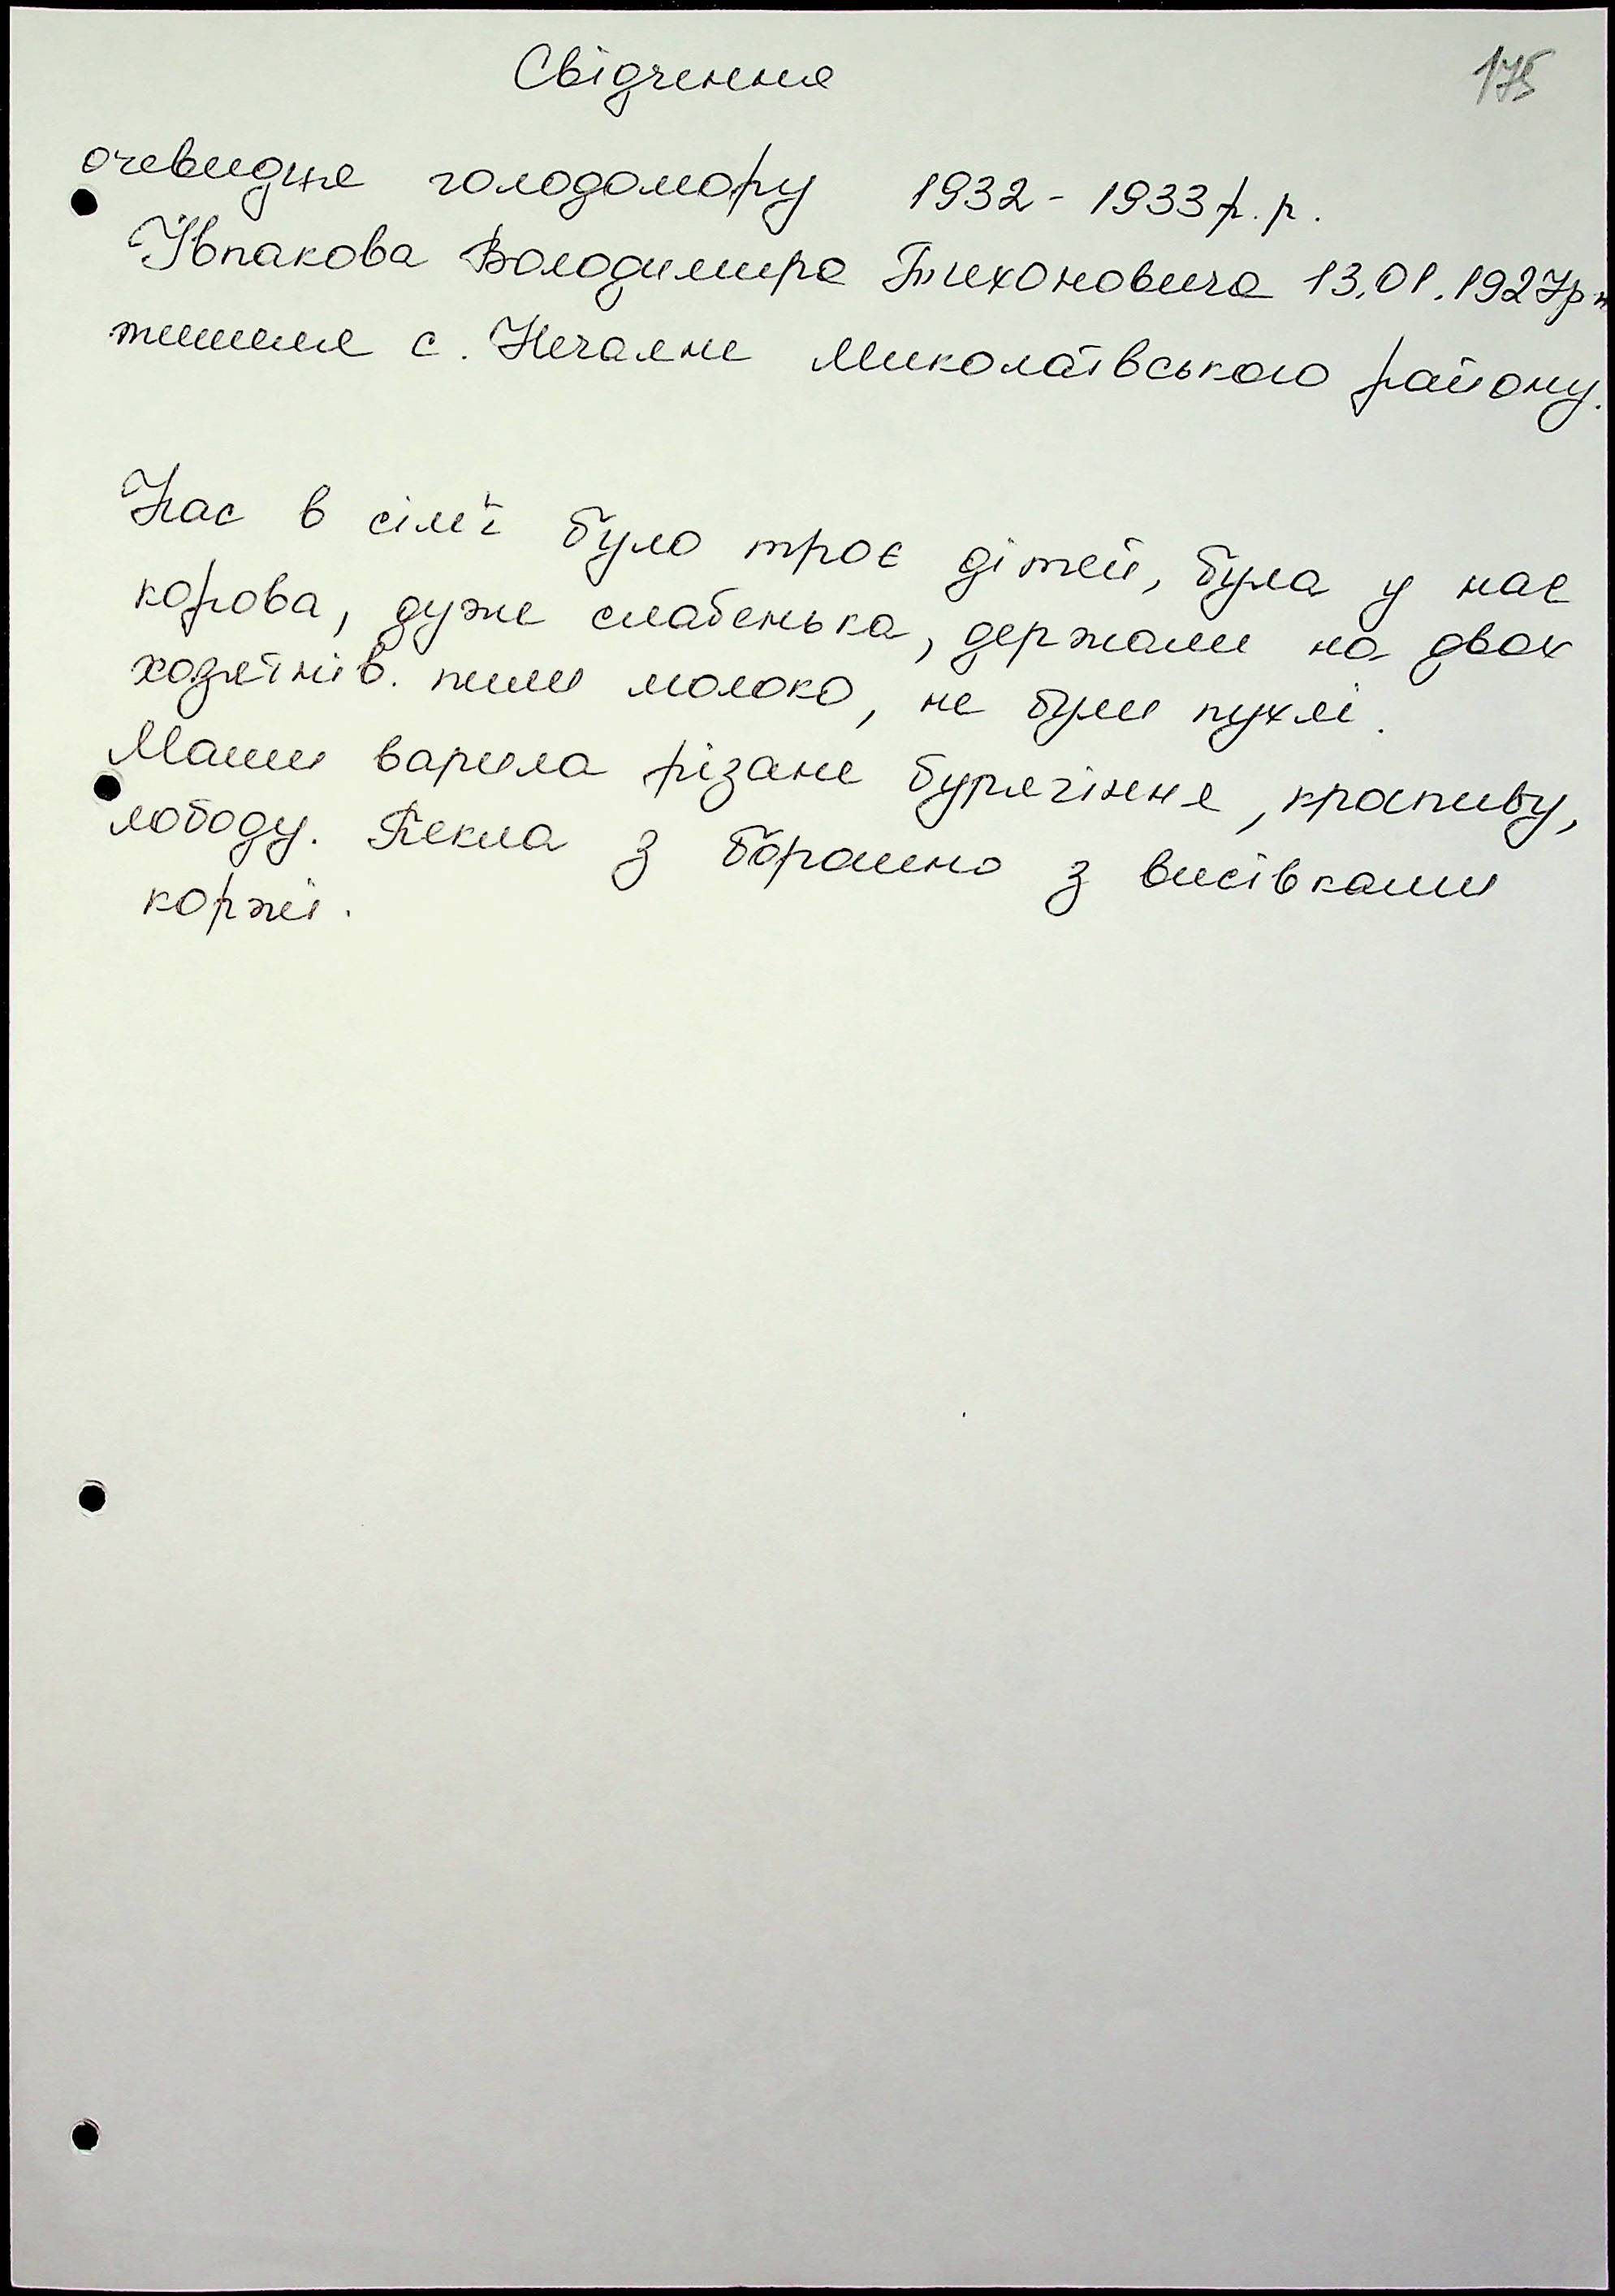 Свідчення
175
очевидця голодомору 1932 - 1933 р.р.
Івпакова Володимира Тихоновича 13.01.1927р н
жителя с. Нечаяне Миколаївського району.
Нас в сім'ї було троє дітей, була у нас
корова, дуже слабенька, держали на двох
хозяїнів. пили молоко, не були пухлі.
Мати варила різане бурячіння, крапиву,
лободу. Пекла з борошно з висівками
коржі.